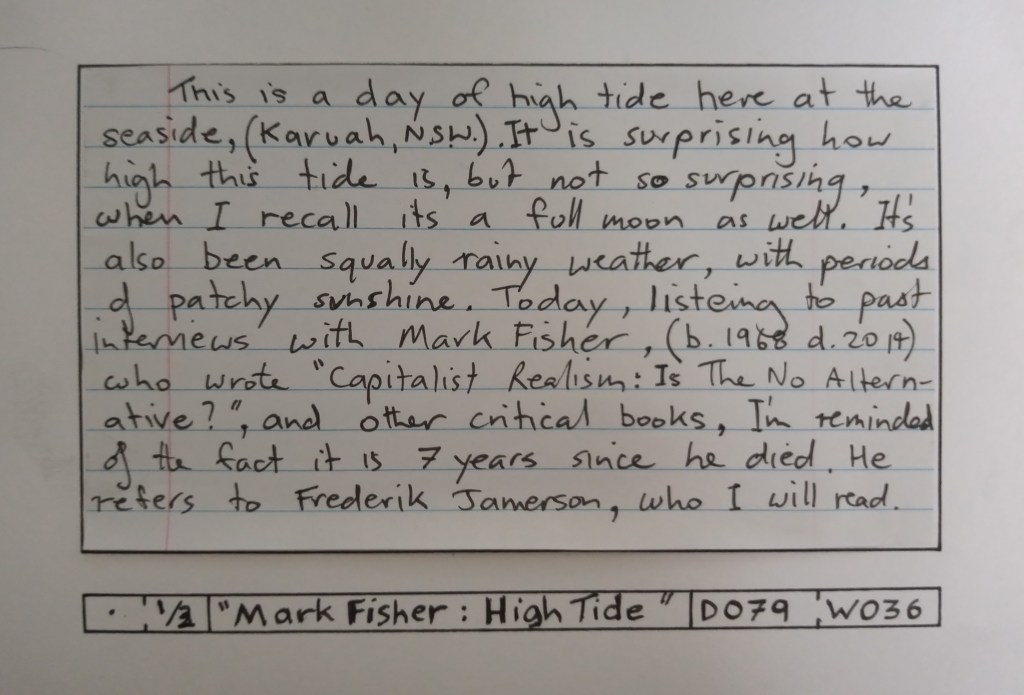 This is a day of high tide here at the
seaside, (Karuah, N.S.W.). It is surprising how
high this tide is, but not so surprising,
when I recall its a full moon as well. It's
also been squally rainy weather, with periods
of patchy sunshine. Today, listeing to past
interviews with Mark Fisher, (b. 1968 d. 2017)
who wrote "Capitalist Realism: Is The No Altern-
ative?", and other critical books, I'm reminded
of the fact it is 7 years since he died. He
refers to Frederik Jamerson, who I will read.
. 1/2 "Mark Fisher: High Tide" D079 W036